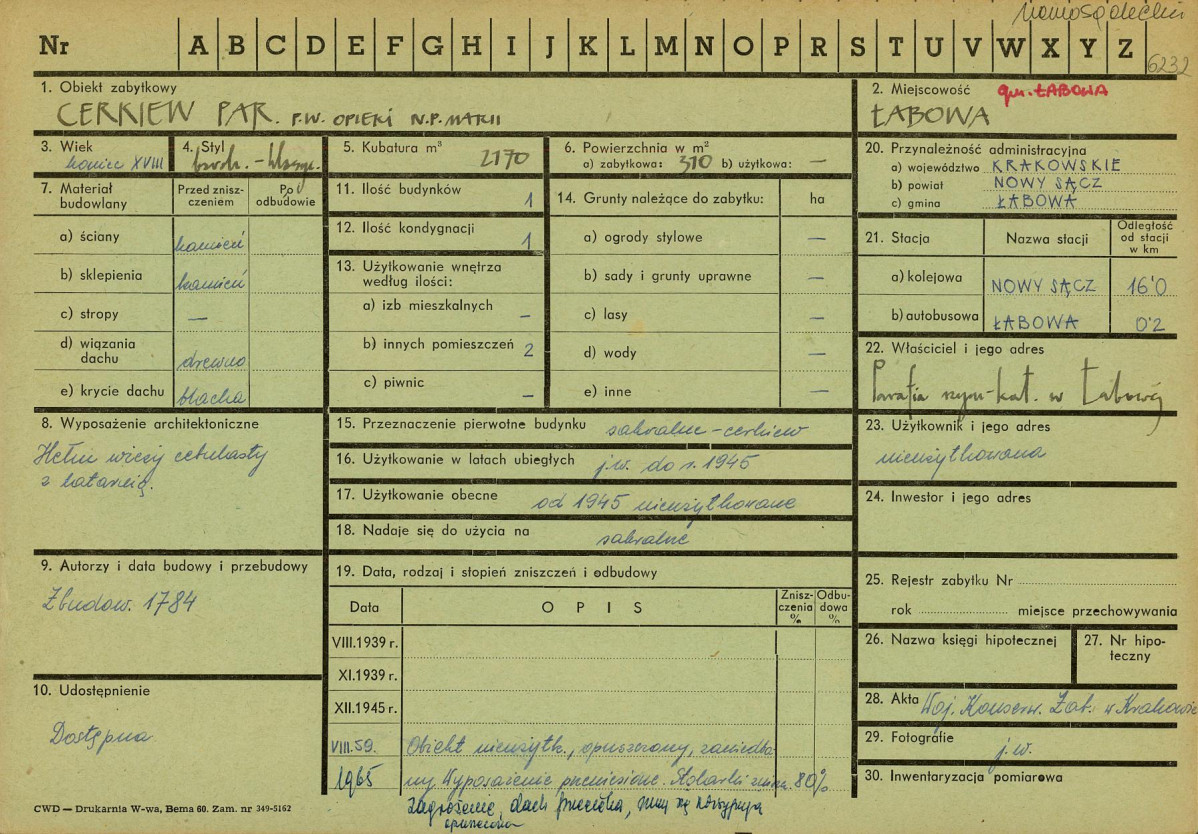 nowosądeckie
Nr A B C D E F G H I J K L M N O P R S T U V W X Y Z
6232
1. Obiekt zabytkowy
CERKIEW PAR. P.W. OPIEKI N.P. MARII
2. Miejscowość gm. ŁABOWA
ŁABOWA
3. Wiek
koniec XVIII
4. Styl
barok. - klasyc.
5. Kubatura m³
2170
6. Powierzchnia w m²
a) zabytkowa: 310 b) użytkowa: —
20. Przynależność administracyjna
a) województwo KRAKOWSKIE
b) powiat NOWY SĄCZ
c) gmina ŁABOWA
7. Materiał budowlany
Przed znisz-
czeniem
Po
odbudowie
a) ściany kamień
b) sklepienia kamień
c) stropy —
d) wiązania
dachu drewno
e) krycie dachu blacha
11. Ilość budynków 1
12. Ilość kondygnacji 1
13. Użytkowanie wnętrza
według ilości:
a) izb mieszkalnych —
b) innych pomieszczeń 2
c) piwnic —
14. Grunty należące do zabytku: ha
a) ogrody stylowe —
b) sady i grunty uprawne —
c) lasy —
d) wody —
e) inne —
21. Stacja Nazwa stacji Odległość
od stacji
w km
a) kolejowa NOWY SĄCZ 16'0
b) autobusowa ŁABOWA 0'2
22. Właściciel i jego adres
Parafia rzym-kat. w Łabowej
8. Wyposażenie architektoniczne
Hełm wieży cebulasty
z latarnią.
15. Przeznaczenie pierwotne budynku sakralne - cerkiew
16. Użytkowanie w latach ubiegłych j.w. do r. 1945
17. Użytkowanie obecne od 1945 nieużytkowane
18. Nadaje się do użycia na sakralne
23. Użytkownik i jego adres
nieużytkowana
24. Inwestor i jego adres
9. Autorzy i data budowy i przebudowy
Zbudow. 1784
10. Udostępnienie
Dostępna
19. Data, rodzaj i stopień zniszczeń i odbudowy
Data OPIS Znisz-
czenia
%
Odbu-
dowa
%
VIII.1939 r.
XI.1939 r.
XII.1945 r.
VIII.59. Obiekt nieużytk., opuszczony, zaniedba
1965 ny Wyposażenie przeniesione. 80%
zagrożenie, dach przecieka, mury się rozsypują
opuszczona
25. Rejestr zabytku Nr
rok miejsce przechowywania
26. Nazwa księgi hipotecznej
27. Nr hipo-
teczny
28. Akta Woj. Konserw. Zab. w Krakowie
29. Fotografie j.w.
30. Inwentaryzacja pomiarowa
CWD — Drukarnia W-wa, Bema 60. Zam. nr 349-5162